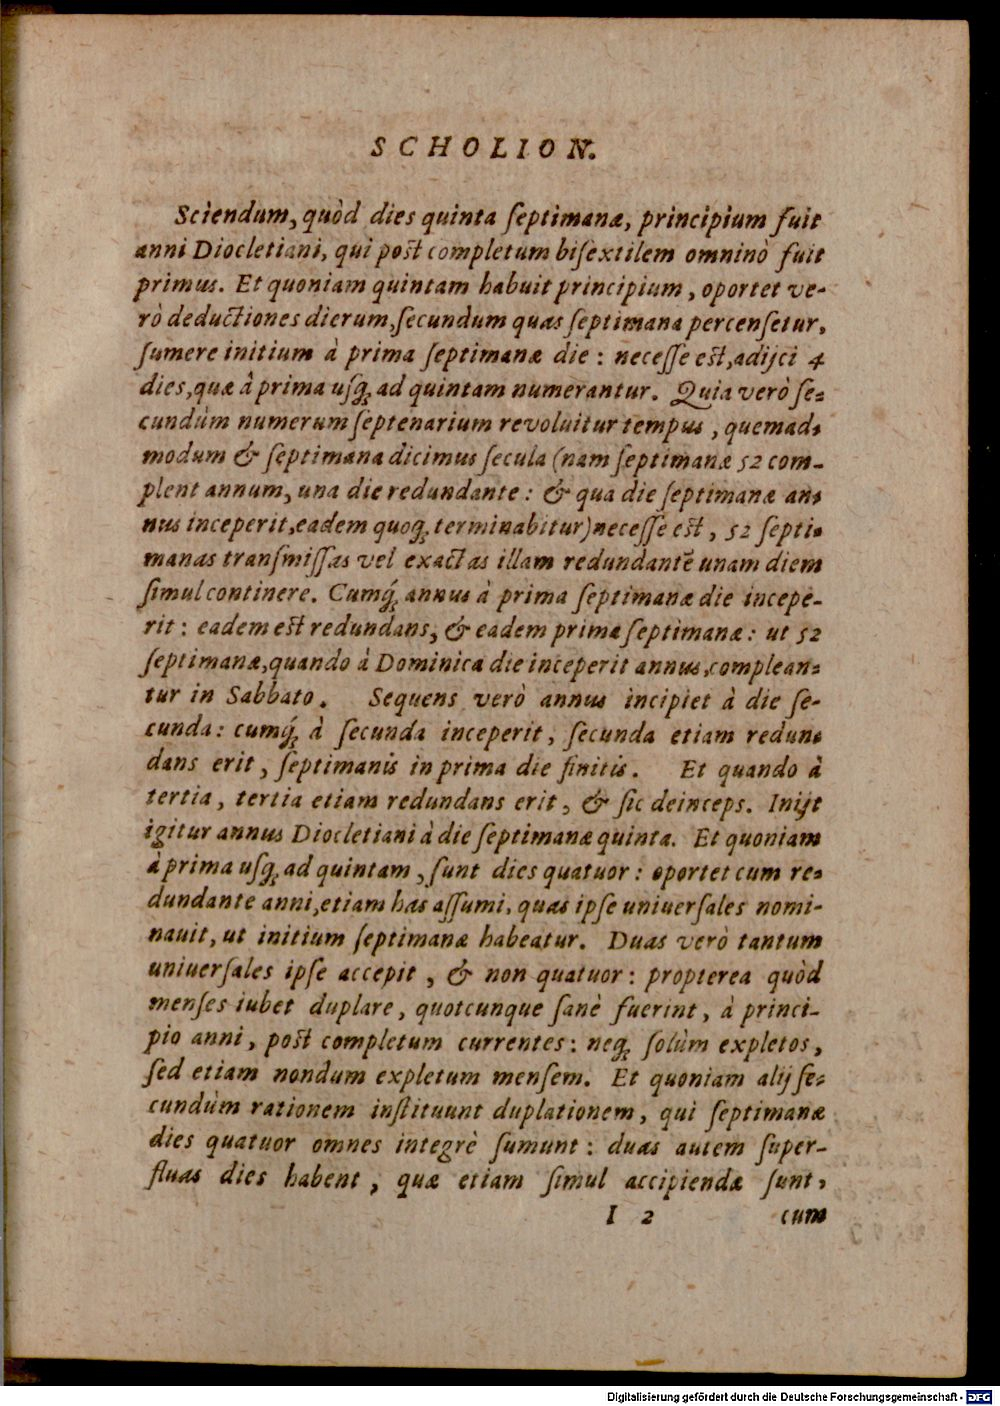 SCHOLION.
Sciendum, quòd dies quinta ſeptimanæ, principium fuit
anni Diocletiani, qui post completum biſextilem omninò fuit
primus. Et quoniam quintam habuit principium, oportet ve-
rò deductiones dierum, ſecundum quas ſeptimana percenſetur,
ſumere initium à prima ſeptimanæ die: neceſſe est, adijci 4
dies, quæ à prima uſq́; ad quintam numerantur. Quia verò ſe-
cundùm numerum ſeptenarium reuoluitur tempus, quemad-
modum & ſeptimana dicimus ſecula (nam ſeptimanæ 52 com-
plent annum, una die redundante: & qua die ſeptimanæ an-
nus inceperit, eadem quoq; terminabitur) neceſſe est, 52 ſepti-
manas tranſmiſſas vel exactas illam redundantẽ unam diem
ſimul continere. Cumq́; annus à prima ſeptimanæ die incepe-
rit: eadem est redundans, & eadem prima ſeptimanæ: ut 52
ſeptimanæ, quando à Dominica die inceperit annus, complean-
tur in Sabbato. Sequens verò annus incipiet à die ſe-
cunda: cumq́; à ſecunda inceperit, ſecunda etiam redun-
dans erit, ſeptimanis in prima die finitis. Et quando à
tertia, tertia etiam redundans erit, & ſic deinceps. Inijt
igitur annus Diocletiani à die ſeptimanæ quinta. Et quoniam
à prima uſq; ad quintam, ſunt dies quatuor: oportet cum re-
dundante anni, etiam has aſſumi, quas ipſe uniuerſales nomi-
nauit, ut initium ſeptimanæ habeatur. Duas verò tantum
uniuerſales ipſe accepit, & non quatuor: propterea quòd
menſes iubet duplare, quotcunque ſanè fuerint, à princi-
pio anni, post completum currentes: neq; ſolùm expletos,
ſed etiam nondum expletum menſem. Et quoniam alij ſe-
cundùm rationem inſtituunt duplationem, qui ſeptimanæ
dies quatuor omnes integrè ſumunt: duas autem ſuper-
fluas dies habent, quæ etiam ſimul accipiendæ ſunt,
I 2 cum
Digitalisierung gefördert durch die Deutsche Forschungsgemeinschaft - DFG